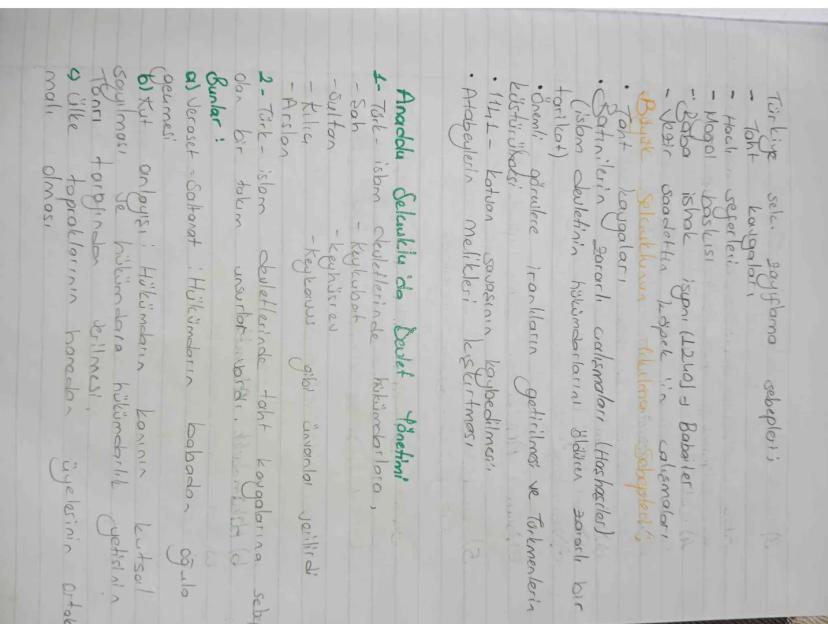 Türkiye selc. zayıflama sebepleri;
- Taht kavgaları
- Haçlı seferleri
- Mogol baskısı
- Baba ishak isyanı (1240) → Babailer
- Vezir saadettin köpek'in çalışmaları
Büyük selcuklunun Yıkılma sebepleri;
• Taht kavgaları
• Batinilerin zararlı calısmaları (Hashasiler)
(islam devletinin hükümdarlarını öldüren zararlı bir
tarikat)
• Önemli görevlere iranlıların getirilmesi ve Türkmenlerin
küstürülmesi
• 1141 - katvan savasının kaybedilmesi
• Atabeylerin melikleri kışkırtması
Anadolu Selcuklu'da Devlet Yönetimi
1- Türk-islam devletlerinde hükümdarlara,
- Sah - keykubat
- Sultan - keyhüsrev
- Kılıç - Keykavus gibi ünvanlar verilirdi
- Arslan
2- Türk-islam devletlerinde taht kavgalarına sebe
olan bir takım unsurlar vardı.
Bunlar:
a) Veraset - Saltanat: Hükümdarın babadan oğula
geçmesi
b) Kut anlayışı: Hükümdarın kanının kutsal
sayılması ve hükümdara hükümdarlık yetisinin
Tanrı tarafından verilmesi.
c) Ülke topraklarının hanedan üyelerinin ortak
malı olması